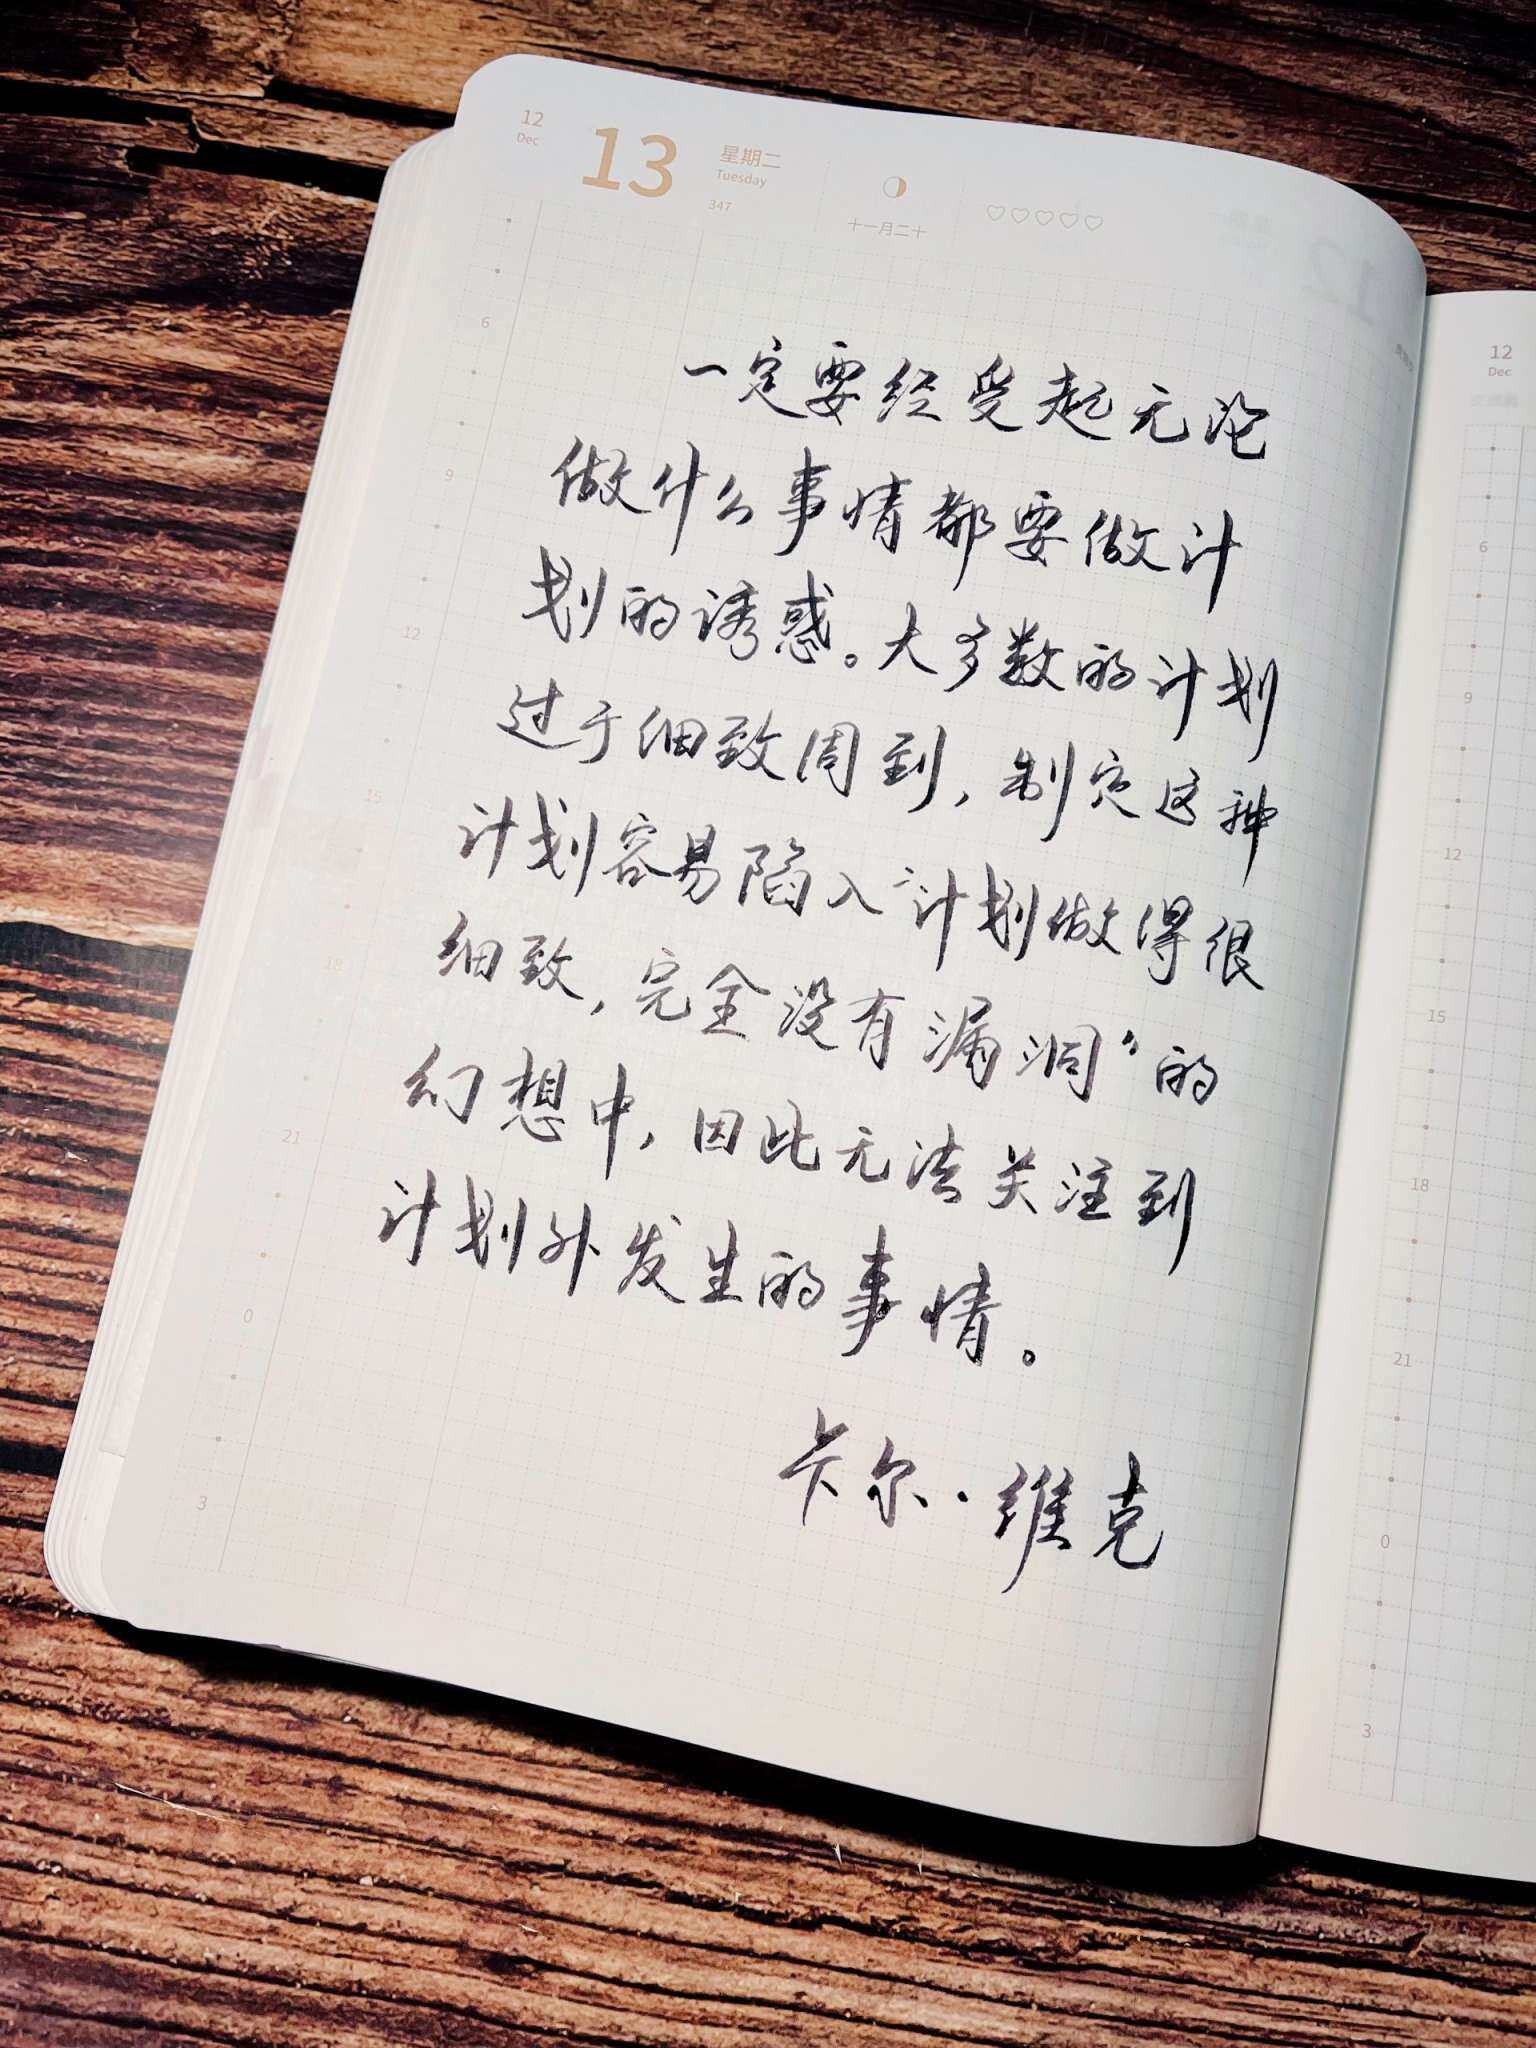 12
Dec
13
星期二
Tuesday
347
十一月二十
6
9
12
15
18
21
0
3
一定要经受起无论
做什么事情都要做计
划的诱惑。大多数的计划
过于细致周到,制定这种
计划容易陷入“计划做得很
细致,完全没有漏洞”的
幻想中,因此无法关注到
计划外发生的事情。
卡尔·维克
12
Dec
6
9
12
15
18
21
0
3